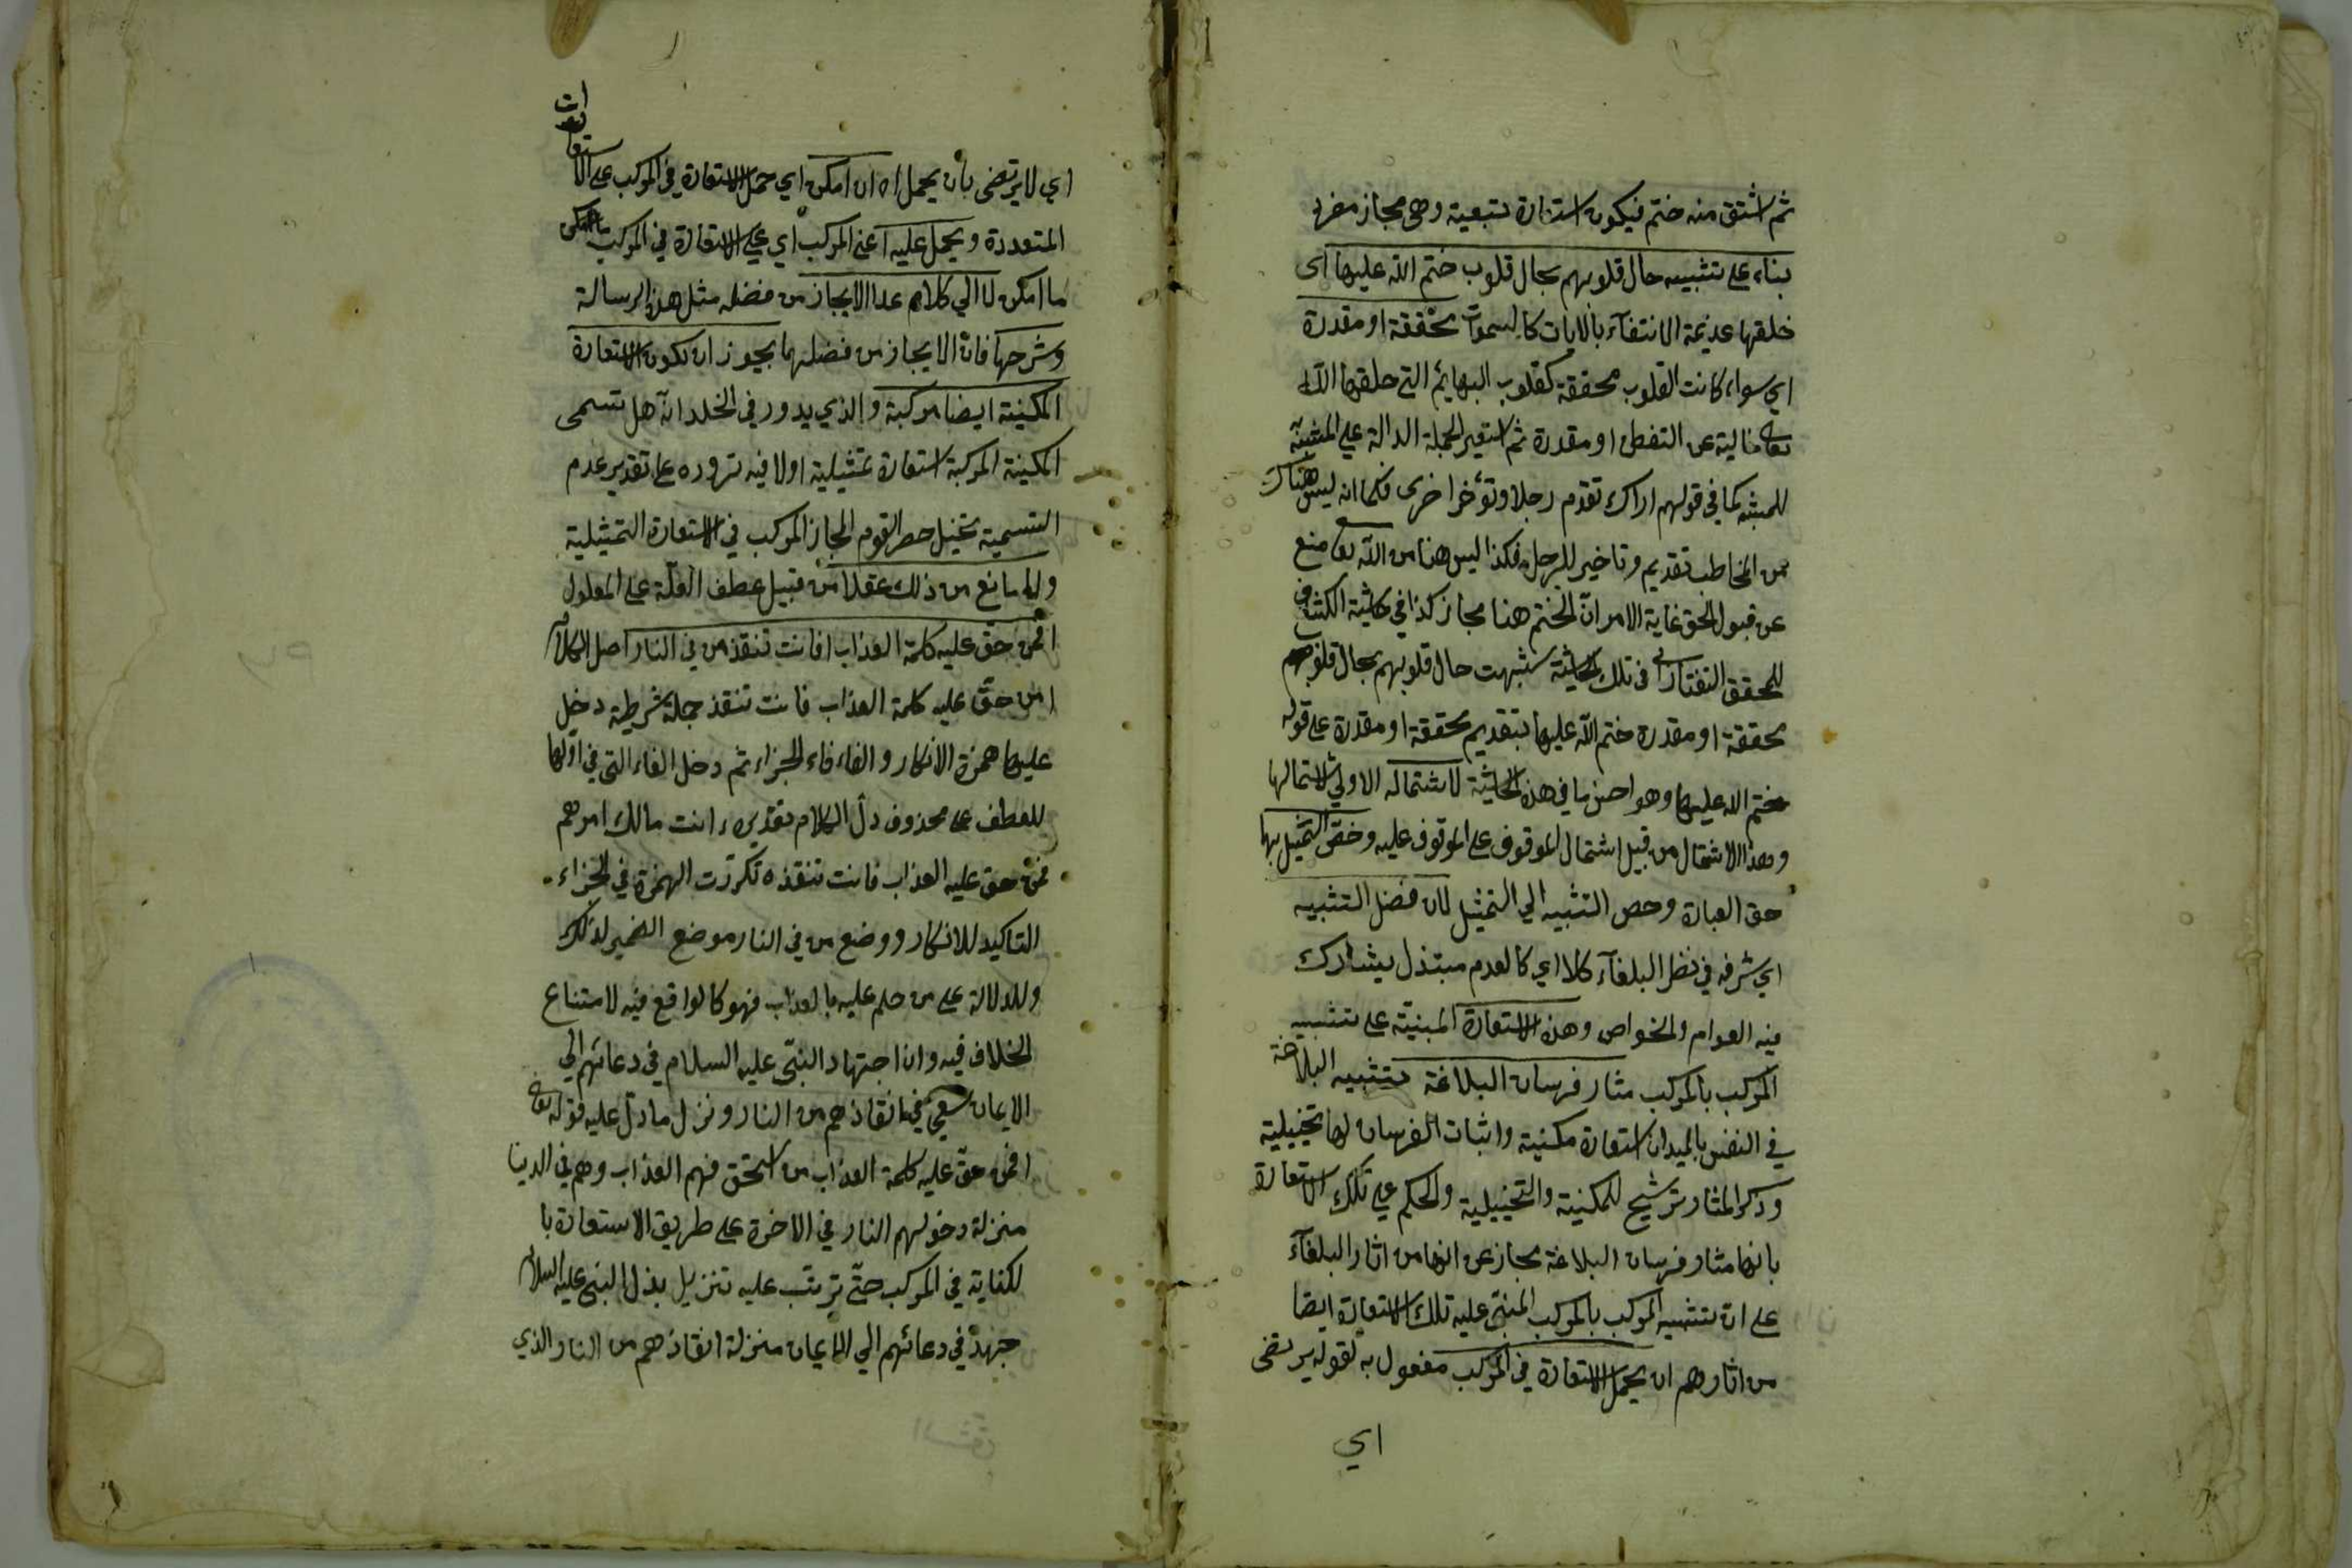 ثم اشتق منه ختم فيكون استعارة تبعية وهى مجاز مفرد
بناء على تشبيه حال قلوبهم بحال قلوب ختم الله عليها اى
خلقها عديمة الانتفآء بالايات كالسموات محققة او مقدرة
اي سواء كانت القلوب محققة كقلوب البهايم التي خلقها الله
تعا خالية عن التفطن او مقدرة ثم استعير الجملة الدالة علي المشبه به
للمشبه كما في قولهم اراك تقدم رجلا وتؤخر اخرى فكما انه ليس هناك
من المخاطب تقديم وتاخير للرجل فكذا ليس هنا من الله تعا منع
عن قبول الحق غاية الامر ان الختم هنا مجاز كذا في حاشية الكشاف
للمحقق التفتازاني في تلك الحاشية شبهت حال قلوبهم بحال قلوبهم
محققة او مقدرة ختم الله عليها بتقديم محققة او مقدرة على قوله
ختم الله عليها وهو احسن ما في هذه الحاشية لاشتماله الاولي لاشتمالها
وهذا الاشتمال من قبيل اشتمال الموقوف على الموقوف عليه وخص التمثيل بها
حق العبارة وخص التشبيه الي التمثيل لان فضل التشبيه
اي شرفه في نظر البلغآء كلا اي كالعدم مبتذل يشارك
فيه العوام والخواص وهذه الاستعارة المبنية على تشبيه
المركب بالمركب مثار فرسان البلاغة بتشبيه البلاغة
في النفس بالميدان استعارة مكنية واثبات الفرسان لها تخييلية
وذكر المثار ترشيح للمكنية والتخييلية والحكم علي تلك الاستعارة
بانها مثار فرسان البلاغة مجاز عن انها من اثار البلغآء
على ان تشبيه المركب بالمركب المبني عليه تلك الاستعارة ايضا
من اثارهم ان يحمل الاستعارة في المركب مفعول به لقوله يرتضى
اي
اي لا يرتضى بان يحمل اه ان امكن اي حمل الاستعارة في المركب على الاستعارات
المتعددة ويحمل عليه اعني المركب اي علي الاستعارة في المركب
ما امكن لا الي كلام عدا الايجاز من فضله مثل هذه الرسالة
وشرحها فان الايجاز من فضلهما يجوز ان تكون الاستعارة
المكنية ايضا مركبة والذي يدور في الخلد انه هل تسمى
المكنية المركبة استعارة تمثيلية اولا فيه تردده على تقدير عدم
التسمية يختل حصر القوم المجاز المركب في الاستعارة التمثيلية
ولا مانع من ذلك عقلا من قبيل عطف العلة على المعلول
افمن حق عليه كلمة العذاب افانت تنقذ من في النار اصل الكلام
امن حق عليه كلمة العذاب فانت تنقذ جملة شرطية دخل
عليها همزة الانكار والفاء فاء الجزاء ثم دخل الفاء التى في اولها
للعطف على محذوف دل الكلام تقديره ءانت مالك امرهم
فمن حق عليه العذاب فانت تنقذه تكررت الهمزة في الجزاء
التاكيد للانكار ووضع من في النار موضع الضمير لذلك
وللدلالة على من حكم عليه بالعذاب فهو كالواقع فيه لامتناع
الخلاف فيه وان اجتهاد النبي عليه السلام في دعائهم الي
الايمان سعي في انقاذهم من النار ونزل ما دل عليه قوله تعا
افمن حق عليه كلمة العذاب من استحق منهم العذاب وهم في الدنيا
منزلة دخولهم النار في الاخرة على طريق الاستعارة با
لكناية في المركب حتى ترتب عليه تنزيل بذل النبى عليه السلام
جهده في دعائهم الي الايمان منزلة انقاذهم من النار والذي